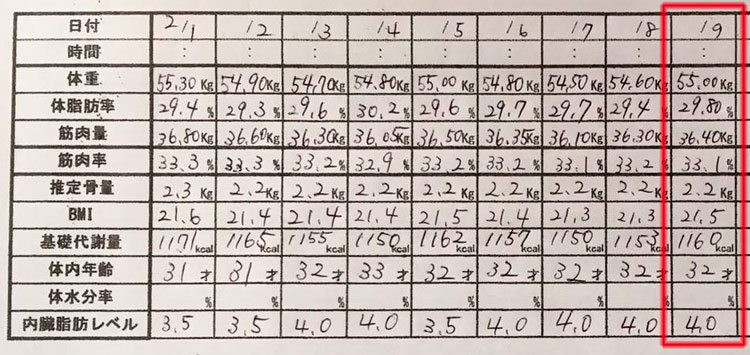 日付 2/1 /2 /3 /4 /5 /6 /7 /8 /9
時間 : : : : : : : : :
体重 55.30Kg 54.90Kg 54.70Kg 54.80Kg 55.00Kg 54.80Kg 54.50Kg 54.60Kg 55.00Kg
体脂肪率 29.4% 29.3% 29.6% 30.2% 29.6% 29.7% 29.7% 29.4% 29.80%
筋肉量 36.80Kg 36.60Kg 36.30Kg 36.05Kg 36.50Kg 36.35Kg 36.10Kg 36.30Kg 36.40Kg
筋肉率 33.3% 33.3% 33.2% 32.9% 33.2% 33.2% 33.1% 33.2% 33.1%
推定骨量 2.3Kg 2.2Kg 2.2Kg 2.2Kg 2.2Kg 2.2Kg 2.2Kg 2.2Kg 2.2Kg
BMI 21.6 21.4 21.4 21.4 21.5 21.4 21.3 21.3 21.5
基礎代謝量 1171kcal 1165kcal 1155kcal 1150kcal 1162kcal 1157kcal 1150kcal 1153kcal 1160kcal
体内年齢 31才 31才 32才 33才 32才 32才 32才 32才 32才
体水分率 % % % % % % % % %
内臓脂肪レベル 3.5 3.5 4.0 4.0 3.5 4.0 4.0 4.0 4.0